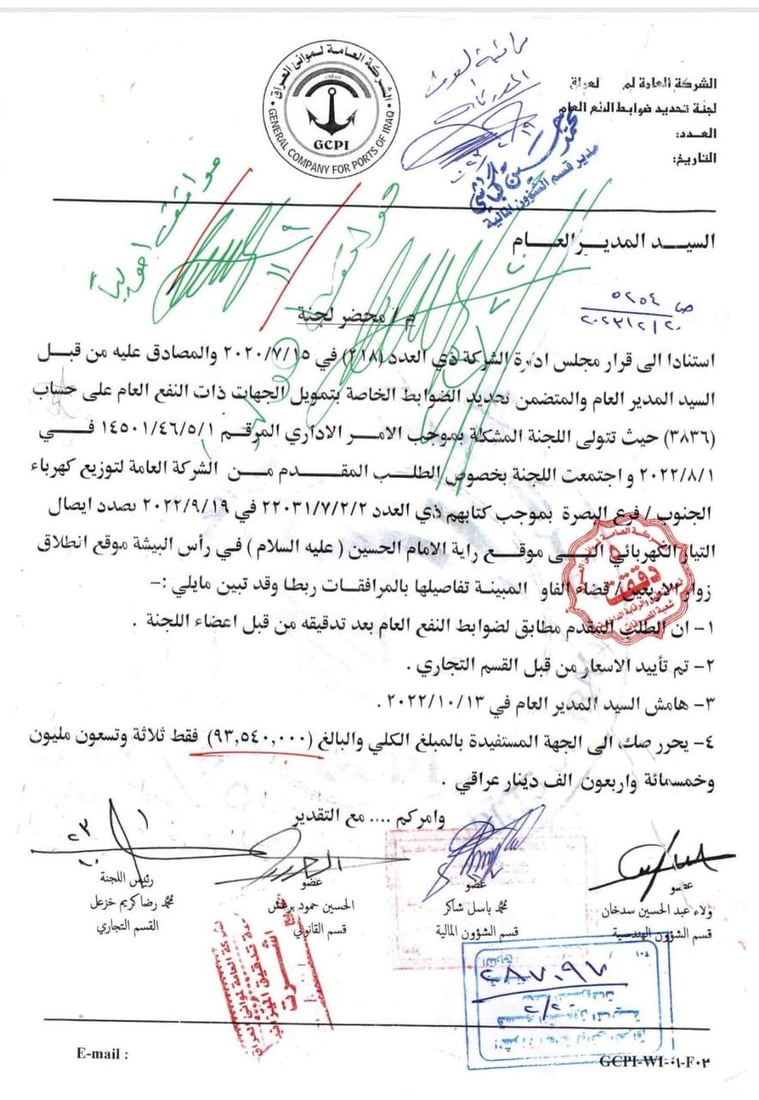 الشركة العامة لموانئ العراق
GENERAL COMPANY FOR PORTS OF IRAQ
GCPI
الشركة العامة لم لعراق
لجنة تحديد ضوابط النفع العام
العدد:
التاريخ:
مدير قسم الشؤون المالية
موافق اصولياً
السيد المدير العام
ص ٥٢٥٤
٢٠٢٣/٢/٢٠
م / محضر لجنة
استنادا الى قرار مجلس ادارة الشركة ذي العدد (٢١٨) في ٢٠٢٠/٧/١٥ والمصادق عليه من قبل
السيد المدير العام والمتضمن تحديد الضوابط الخاصة بتمويل الجهات ذات النفع العام على حساب
(٣٨٣٦) حيث تتولى اللجنة المشكلة بموجب الامر الاداري المرقم ١٤٥٠١/٤٦/٥/١ في
٢٠٢٢/٨/١ و اجتمعت اللجنة بخصوص الطلب المقدم من الشركة العامة لتوزيع كهرباء
الجنوب / فرع البصرة بموجب كتابهم ذي العدد ٢٢٠٣١/٧/٢/٢ في ٢٠٢٢/٩/١٩ بصدد ايصال
التيار الكهربائي الى موقع راية الامام الحسين ( عليه السلام ) في رأس البيشة موقع انطلاق
زوار الاربعين/ قضاء الفاو المبينة تفاصيلها بالمرافقات ربطا وقد تبين مايلي :–
١– ان الطلب المقدم مطابق لضوابط النفع العام بعد تدقيقه من قبل اعضاء اللجنة .
٢– تم تأييد الاسعار من قبل القسم التجاري .
٣– هامش السيد المدير العام في ٢٠٢٢/١٠/١٣ .
٤– يحرر صك الى الجهة المستفيدة بالمبلغ الكلي والبالغ (٩٣,٥٤٠,٠٠٠) فقط ثلاثة وتسعون مليون
وخمسمائة واربعون الف دينار عراقي .
دققت
وامركم .... مع التقدير
عضو
ولاء عبد الحسين سدخان
قسم الشؤون الهندسية
عضو
محمد باسل شاكر
قسم الشؤون المالية
عضو
الحسين حمود
قسم القانوني
رئيس اللجنة
محمد رضا كريم خزعل
القسم التجاري
٢٨٧٠٩٧
٢/٢٠
E-mail :
GCPI-WI-٠١-F٠٣